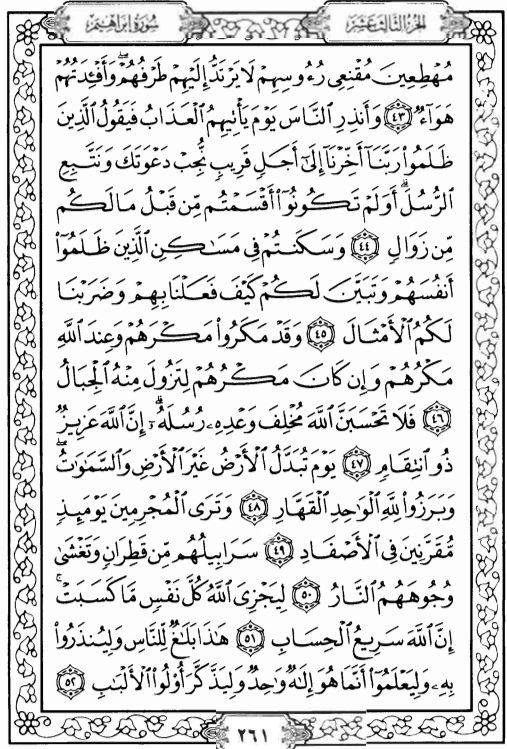 سُورَةُ إِبْرَاهِيم الجُزْءُ الثَّالِثَ عَشَرَ
مُهْطِعِينَ مُقْنِعِى رُءُوسِهِمْ لَا يَرْتَدُّ إِلَيْهِمْ طَرْفُهُمْ ۖ وَأَفْـِٔدَتُهُمْ
هَوَآءٌ ٤٣ وَأَنذِرِ ٱلنَّاسَ يَوْمَ يَأْتِيهِمُ ٱلْعَذَابُ فَيَقُولُ ٱلَّذِينَ
ظَلَمُوا۟ رَبَّنَآ أَخِّرْنَآ إِلَىٰٓ أَجَلٍ قَرِيبٍ نُّجِبْ دَعْوَتَكَ وَنَتَّبِعِ
ٱلرُّسُلَ ۗ أَوَلَمْ تَكُونُوٓا۟ أَقْسَمْتُم مِّن قَبْلُ مَا لَكُم
مِّن زَوَالٍ ٤٤ وَسَكَنتُمْ فِى مَسَـٰكِنِ ٱلَّذِينَ ظَلَمُوٓا۟
أَنفُسَهُمْ وَتَبَيَّنَ لَكُمْ كَيْفَ فَعَلْنَا بِهِمْ وَضَرَبْنَا
لَكُمُ ٱلْأَمْثَالَ ٤٥ وَقَدْ مَكَرُوا۟ مَكْرَهُمْ وَعِندَ ٱللَّهِ
مَكْرُهُمْ وَإِن كَانَ مَكْرُهُمْ لِتَزُولَ مِنْهُ ٱلْجِبَالُ
٤٦ فَلَا تَحْسَبَنَّ ٱللَّهَ مُخْلِفَ وَعْدِهِۦ رُسُلَهُۥٓ ۗ إِنَّ ٱللَّهَ عَزِيزٌ
ذُو ٱنتِقَامٍ ٤٧ يَوْمَ تُبَدَّلُ ٱلْأَرْضُ غَيْرَ ٱلْأَرْضِ وَٱلسَّمَـٰوَٰتُ ۖ
وَبَرَزُوا۟ لِلَّهِ ٱلْوَٰحِدِ ٱلْقَهَّارِ ٤٨ وَتَرَى ٱلْمُجْرِمِينَ يَوْمَئِذٍ
مُّقَرَّنِينَ فِى ٱلْأَصْفَادِ ٤٩ سَرَابِيلُهُم مِّن قَطِرَانٍ وَتَغْشَىٰ
وُجُوهَهُمُ ٱلنَّارُ ٥٠ لِيَجْزِىَ ٱللَّهُ كُلَّ نَفْسٍ مَّا كَسَبَتْ ۚ
إِنَّ ٱللَّهَ سَرِيعُ ٱلْحِسَابِ ٥١ هَـٰذَا بَلَـٰغٌ لِّلنَّاسِ وَلِيُنذَرُوا۟
بِهِۦ وَلِيَعْلَمُوٓا۟ أَنَّمَا هُوَ إِلَـٰهٌ وَٰحِدٌ وَلِيَذَّكَّرَ أُو۟لُوا۟ ٱلْأَلْبَـٰبِ ٥٢
٢٦١